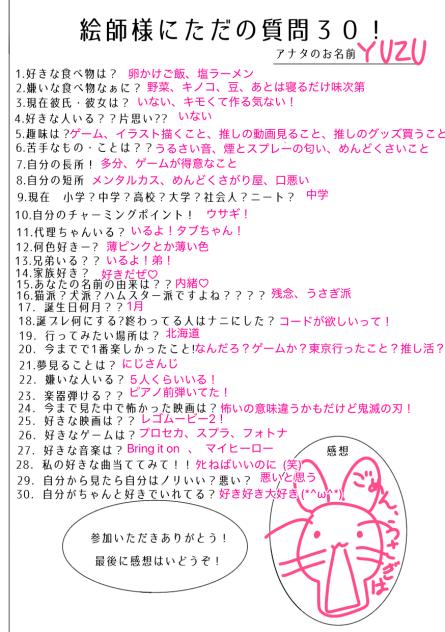 絵師様にただの質問30!
アナタのお名前 YUZU
1.好きな食べ物は? 卵かけご飯、塩ラーメン
2.嫌いな食べ物なぁに? 野菜、キノコ、豆、あとは寝るだけ味次第
3.現在彼氏・彼女は? いない、キモくて作る気ない!
4.好きな人いる??片思い?? いない
5.趣味は?ゲーム、イラスト描くこと、推しの動画見ること、推しのグッズ買うこと
6.苦手なもの・ことは??うるさい音、煙とスプレーの匂い、めんどくさいこと
7.自分の長所! 多分、ゲームが得意なこと
8.自分の短所 メンタルカス、めんどくさがり屋、口悪い
9.現在 小学?中学?高校?大学?社会人?ニート? 中学
10.自分のチャーミングポイント! ウサギ!
11.代理ちゃんいる? いるよ!タブちゃん!
12.何色好きー? 薄ピンクとか薄い色
13.兄弟いる?? いるよ!弟!
14.家族好き? 好きだぜ♡
15.あなたの名前の由来は??内緒♡
16.猫派?犬派?ハムスター派ですよね???? 残念、うさぎ派
17. 誕生日何月??1月
18.誕プレ何にする?終わってる人はナニにした? コードが欲しいって!
19. 行ってみたい場所は? 北海道
20. 今までで1番楽しかったこと!なんだろ?ゲームか?東京行ったこと?推し活?
21.夢見ることは? にじさんじ
22. 嫌いな人いる? 5人くらいいる!
23. 楽器弾ける?? ピアノ前弾いてた!
24. 今まで見た中で怖かった映画は? 怖いの意味違うかもだけど鬼滅の刃!
25. 好きな映画は?? レゴムービー2!
26. 好きなゲームは? プロセカ、スプラ、フォトナ
27. 好きな音楽は? Bring it on 、 マイヒーロー
28. 私の好きな曲当ててみて!! タヒねばいいのに (笑)
29. 自分から見たら自分はノリいい?悪い? 悪いと思う
30. 自分がちゃんと好きでいれてる? 好き好き大好き(*^ω^*)
感想
ごめん、うさぎは
参加いただきありがとう!
最後に感想はいどうぞ!